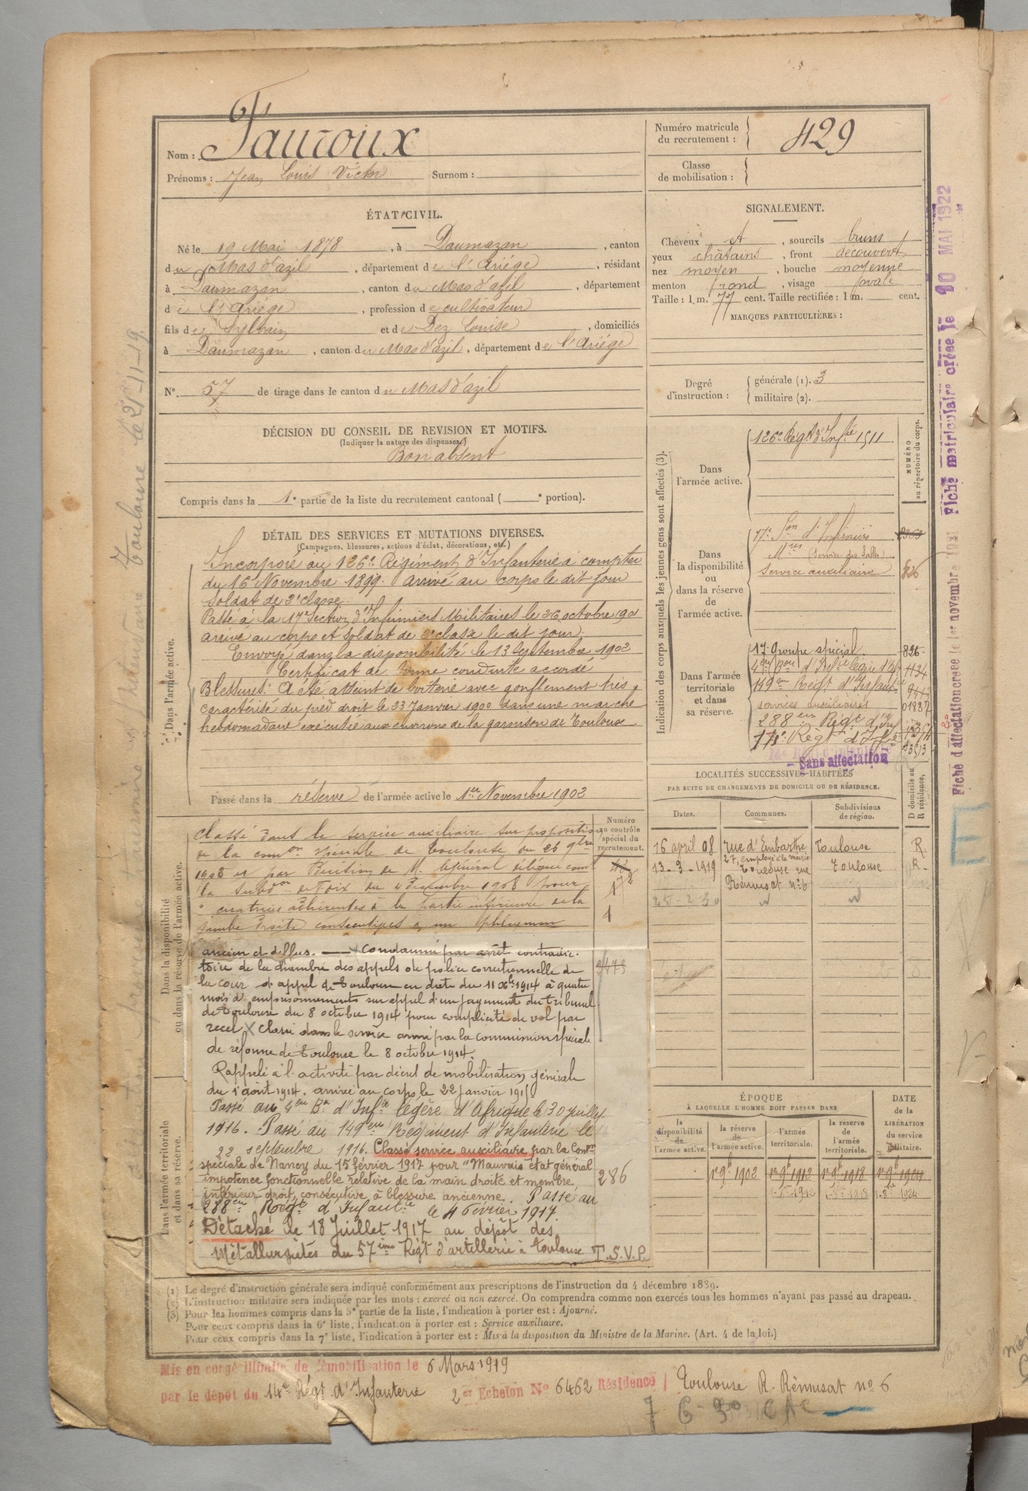 Nom : Fauroux
Prénoms : Jean Louis Victor Surnom :
Numéro matricule du recrutement : 429
Classe de mobilisation :
ÉTAT CIVIL.
Né le 19 Mai 1878, à Daumazan, canton
du Mas d'azil, département de l'Ariège, résidant
à Daumazan, canton du Mas d'azil, département
de l'Ariège, profession de cultivateur
fils de Sylvain et de Dez Louise, domiciliés
à Daumazan, canton du Mas d'azil, département de l'Ariège
N° 57 de tirage dans le canton du Mas d'azil
SIGNALEMENT.
Cheveux et, sourcils bruns
yeux châtains, front découvert
nez moyen, bouche moyenne
menton rond, visage ovale
Taille : 1 m. 77 cent. Taille rectifiée : 1 m. cent.
MARQUES PARTICULIÈRES :
Degré d'instruction : générale (1). 3
militaire (2).
DÉCISION DU CONSEIL DE REVISION ET MOTIFS.
(Indiquer la nature des dispenses.)
Bon absent
Compris dans la 1e partie de la liste du recrutement cantonal ( e portion).
DÉTAIL DES SERVICES ET MUTATIONS DIVERSES.
(Campagnes, blessures, actions d'éclat, décorations, etc.)
Dans l'armée active.
Incorporé au 126e Régiment d'Infanterie à compter
du 16 Novembre 1899. arrivé au corps le dit jour
soldat de 2e classe
Passé à la 17e Section d'Infirmiers Militaires le 26 octobre 190
arrivé au corps et soldat de 2e classe le dit jour.
Envoyé dans la disponibilité le 13 Septembre 1902
Certificat de bonne conduite accordé
Blessures : A été atteint de boiterie avec gonflement très
caractérisé du pied droit le 23 Janvier 1900 dans une marche
hebdomadaire exécutée aux environs de la garnison de Toulouse
Passé dans la réserve de l'armée active le 1er Novembre 1902
Dans la disponibilité ou dans la réserve de l'armée active.
Numéro au contrôle spécial du recrutement.
Classé dans le service auxiliaire sur proposition
de la com^on spéciale de Toulouse du 26
1908 et par Décision de M. le Général délégué com^t
la Subd^on de Foix du 4 Décembre 1908 pour
" cicatrices adhérentes à la partie inférieure de la
jambe droite consécutives à un phlegmon
ancien et diffus. — X Condamné par arrêt contradic-
toire de la chambre des appels de police correctionnelle de
la cour d'appel de Toulouse en date du 11 Xbre 1914 à quatre
mois d'emprisonnements sur appel d'un jugement du tribunal
de Toulouse du 8 octobre 1914 pour complicité de vol par
recel X Classé dans le service armé par la commission spéciale
de réforme de Toulouse le 8 octobre 1914.
Rappelé à l'activité par décret de mobilisation générale
du 1er août 1914. arrivé au corps le 22 janvier 1915
Passé au 4me Bon d'Infie légère d'Afrique le 30 juillet
1916. Passé au 149ème Régiment d'Infanterie le
22 septembre 1916. Classé service auxiliaire par la Com^on
spéciale de Nancy du 15 février 1917 pour "Mauvais état général
impotence fonctionnelle relative de la main droite et membre
inférieur droit, consécutive à blessure ancienne. Passé au
288ème Régt d'Infante le 4 Février 1917
Détaché le 18 Juillet 1917 au dépôt des
Métallurgistes du 57ème Régt d'artillerie à Toulouse T.S.V.P.
286
Dans l'armée territoriale et dans sa réserve.
Indication des corps auxquels les jeunes gens sont affectés (3).
NUMÉRO au répertoire du corps.
Dans l'armée active.
126e Régt d'Infie 1511
Dans la disponibilité ou dans la réserve de l'armée active.
17e Son d'Infirmiers
Mres (Service des Salles)
Service auxiliaire
Dans l'armée territoriale et dans sa réserve.
17 Groupe spécial
149ème Régt d'Infante
services auxiliaires
288 ème Régt d'Inf
Régt d'Inf
Sans affectation
LOCALITÉS SUCCESSIVES HABITÉES
PAR SUITE DE CHANGEMENTS DE DOMICILE OU DE RÉSIDENCE.
Dates. Communes. Subdivisions de région. D domicile ou R résidence.
16 avril 08 rue d'Embarthe 27, employé de mairie Toulouse R.
13-3-1919 Toulouse rue Rémusat n° 6 Toulouse R
ÉPOQUE
À LAQUELLE L'HOMME DOIT PASSER DANS
la disponibilité de l'armée active. la réserve de l'armée active. l'armée territoriale. la réserve de l'armée territoriale.
DATE de la LIBÉRATION du service militaire.
(1) Le degré d'instruction générale sera indiqué conformément aux prescriptions de l'instruction du 4 décembre 1889.
(2) L'instruction militaire sera indiquée par les mots : exercé ou non exercé. On comprendra comme non exercés tous les hommes n'ayant pas passé au drapeau.
(3) Pour les hommes compris dans la 5e partie de la liste, l'indication à porter est : Ajourné.
Pour ceux compris dans la 6e liste, l'indication à porter est : Service auxiliaire.
Pour ceux compris dans la 7e liste, l'indication à porter est : Mis à la disposition du Ministre de la Marine. (Art. 4 de la loi.)
Mis en congé illimité de démobilisation le 6 Mars 1919
par le dépôt du 14e Régt d'Infanterie 2me Echelon N° 6462 Résidence Toulouse R. Rémusat n° 6
Fiche matriculaire créée le 20 MAI 1922
Fiche d'affectation créée le 1er novembre 1931